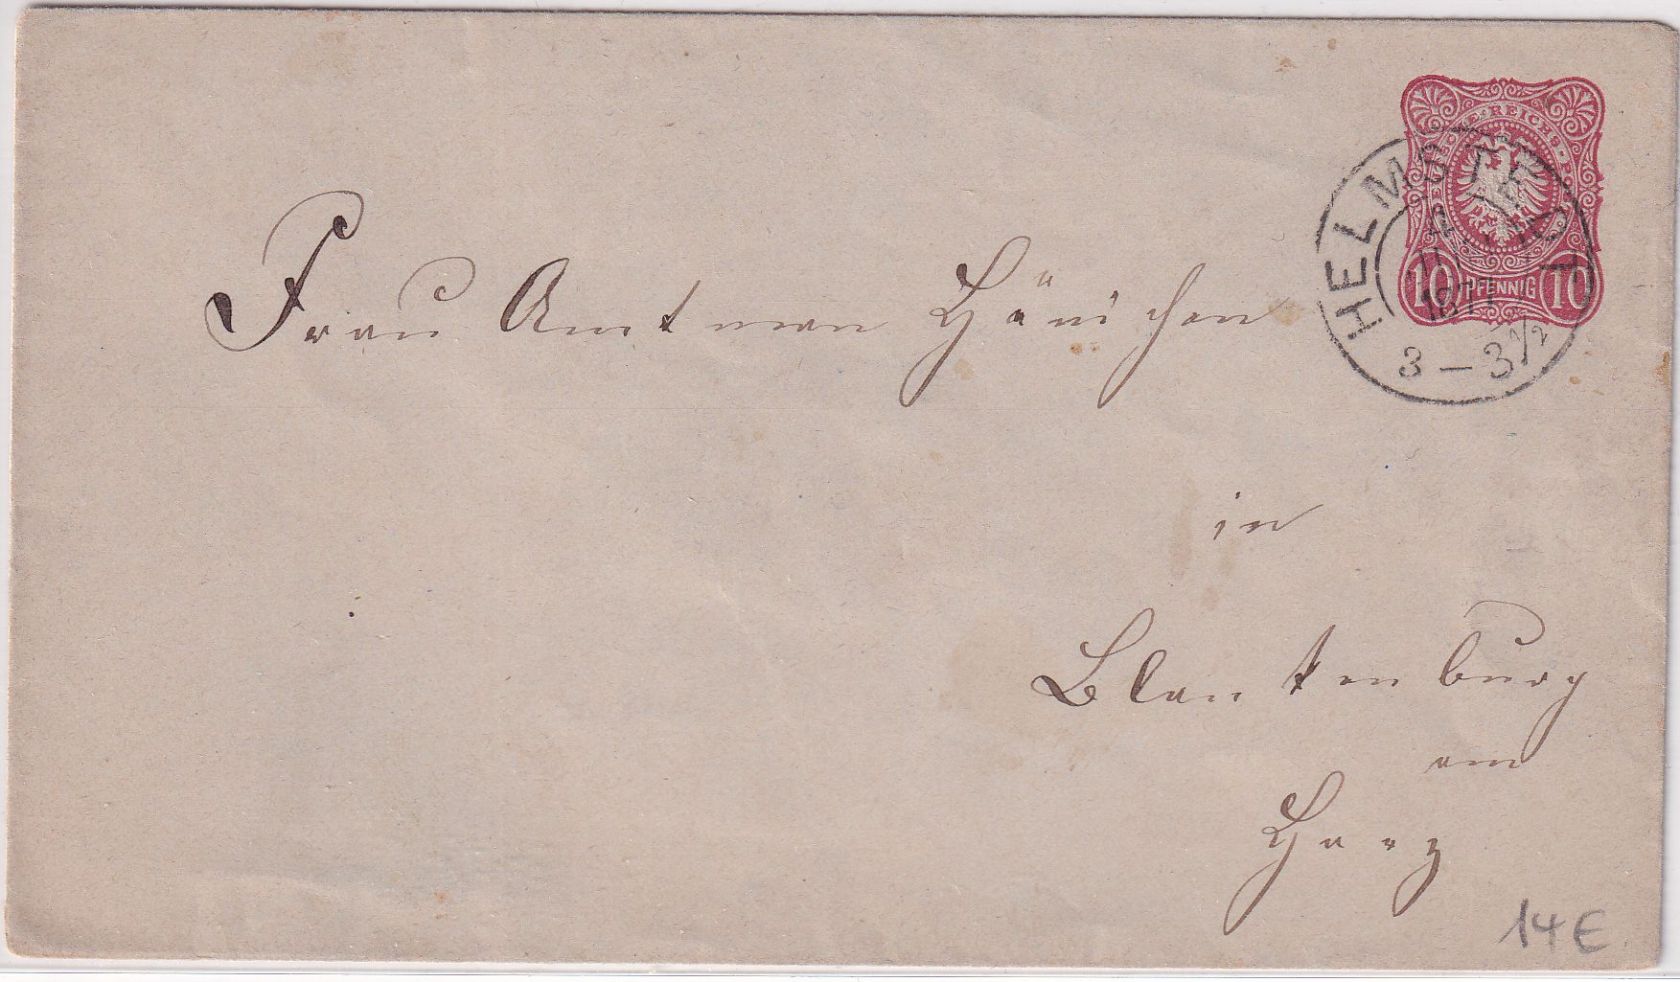 REICHS
10 PFENNIG 10
HELMSTEDT
3 – 3½
Frau Amtman Hänichen
in
Blankenburg
am
Harz
14 E